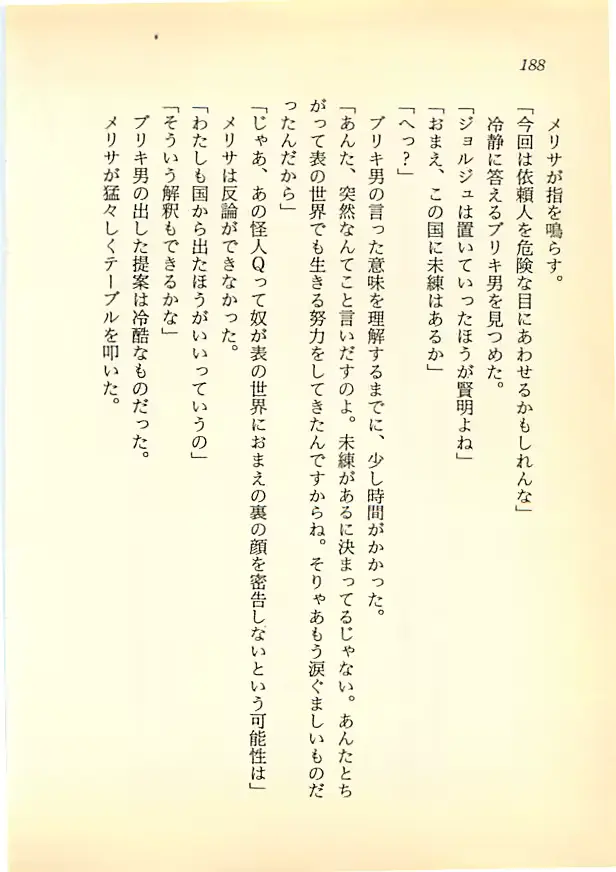 188
メリサが指を鳴らす。
「今回は依頼人を危険な目にあわせるかもしれんな」
冷静に答えるブリキ男を見つめた。
「ジョルジュは置いていったほうが賢明よね」
「おまえ、この国に未練はあるか」
「へっ？」
ブリキ男の言った意味を理解するまでに、少し時間がかかった。
「あんた、突然なんてこと言いだすのよ。未練があるに決まってるじゃない。あんたとち
がって表の世界でも生きる努力をしてきたんですからね。そりゃあもう涙ぐましいものだ
ったんだから」
「じゃあ、あの怪人Ｑって奴が表の世界におまえの裏の顔を密告しないという可能性は」
メリサは反論ができなかった。
「わたしも国から出たほうがいいっていうの」
「そういう解釈もできるかな」
ブリキ男の出した提案は冷酷なものだった。
メリサが猛々しくテーブルを叩いた。